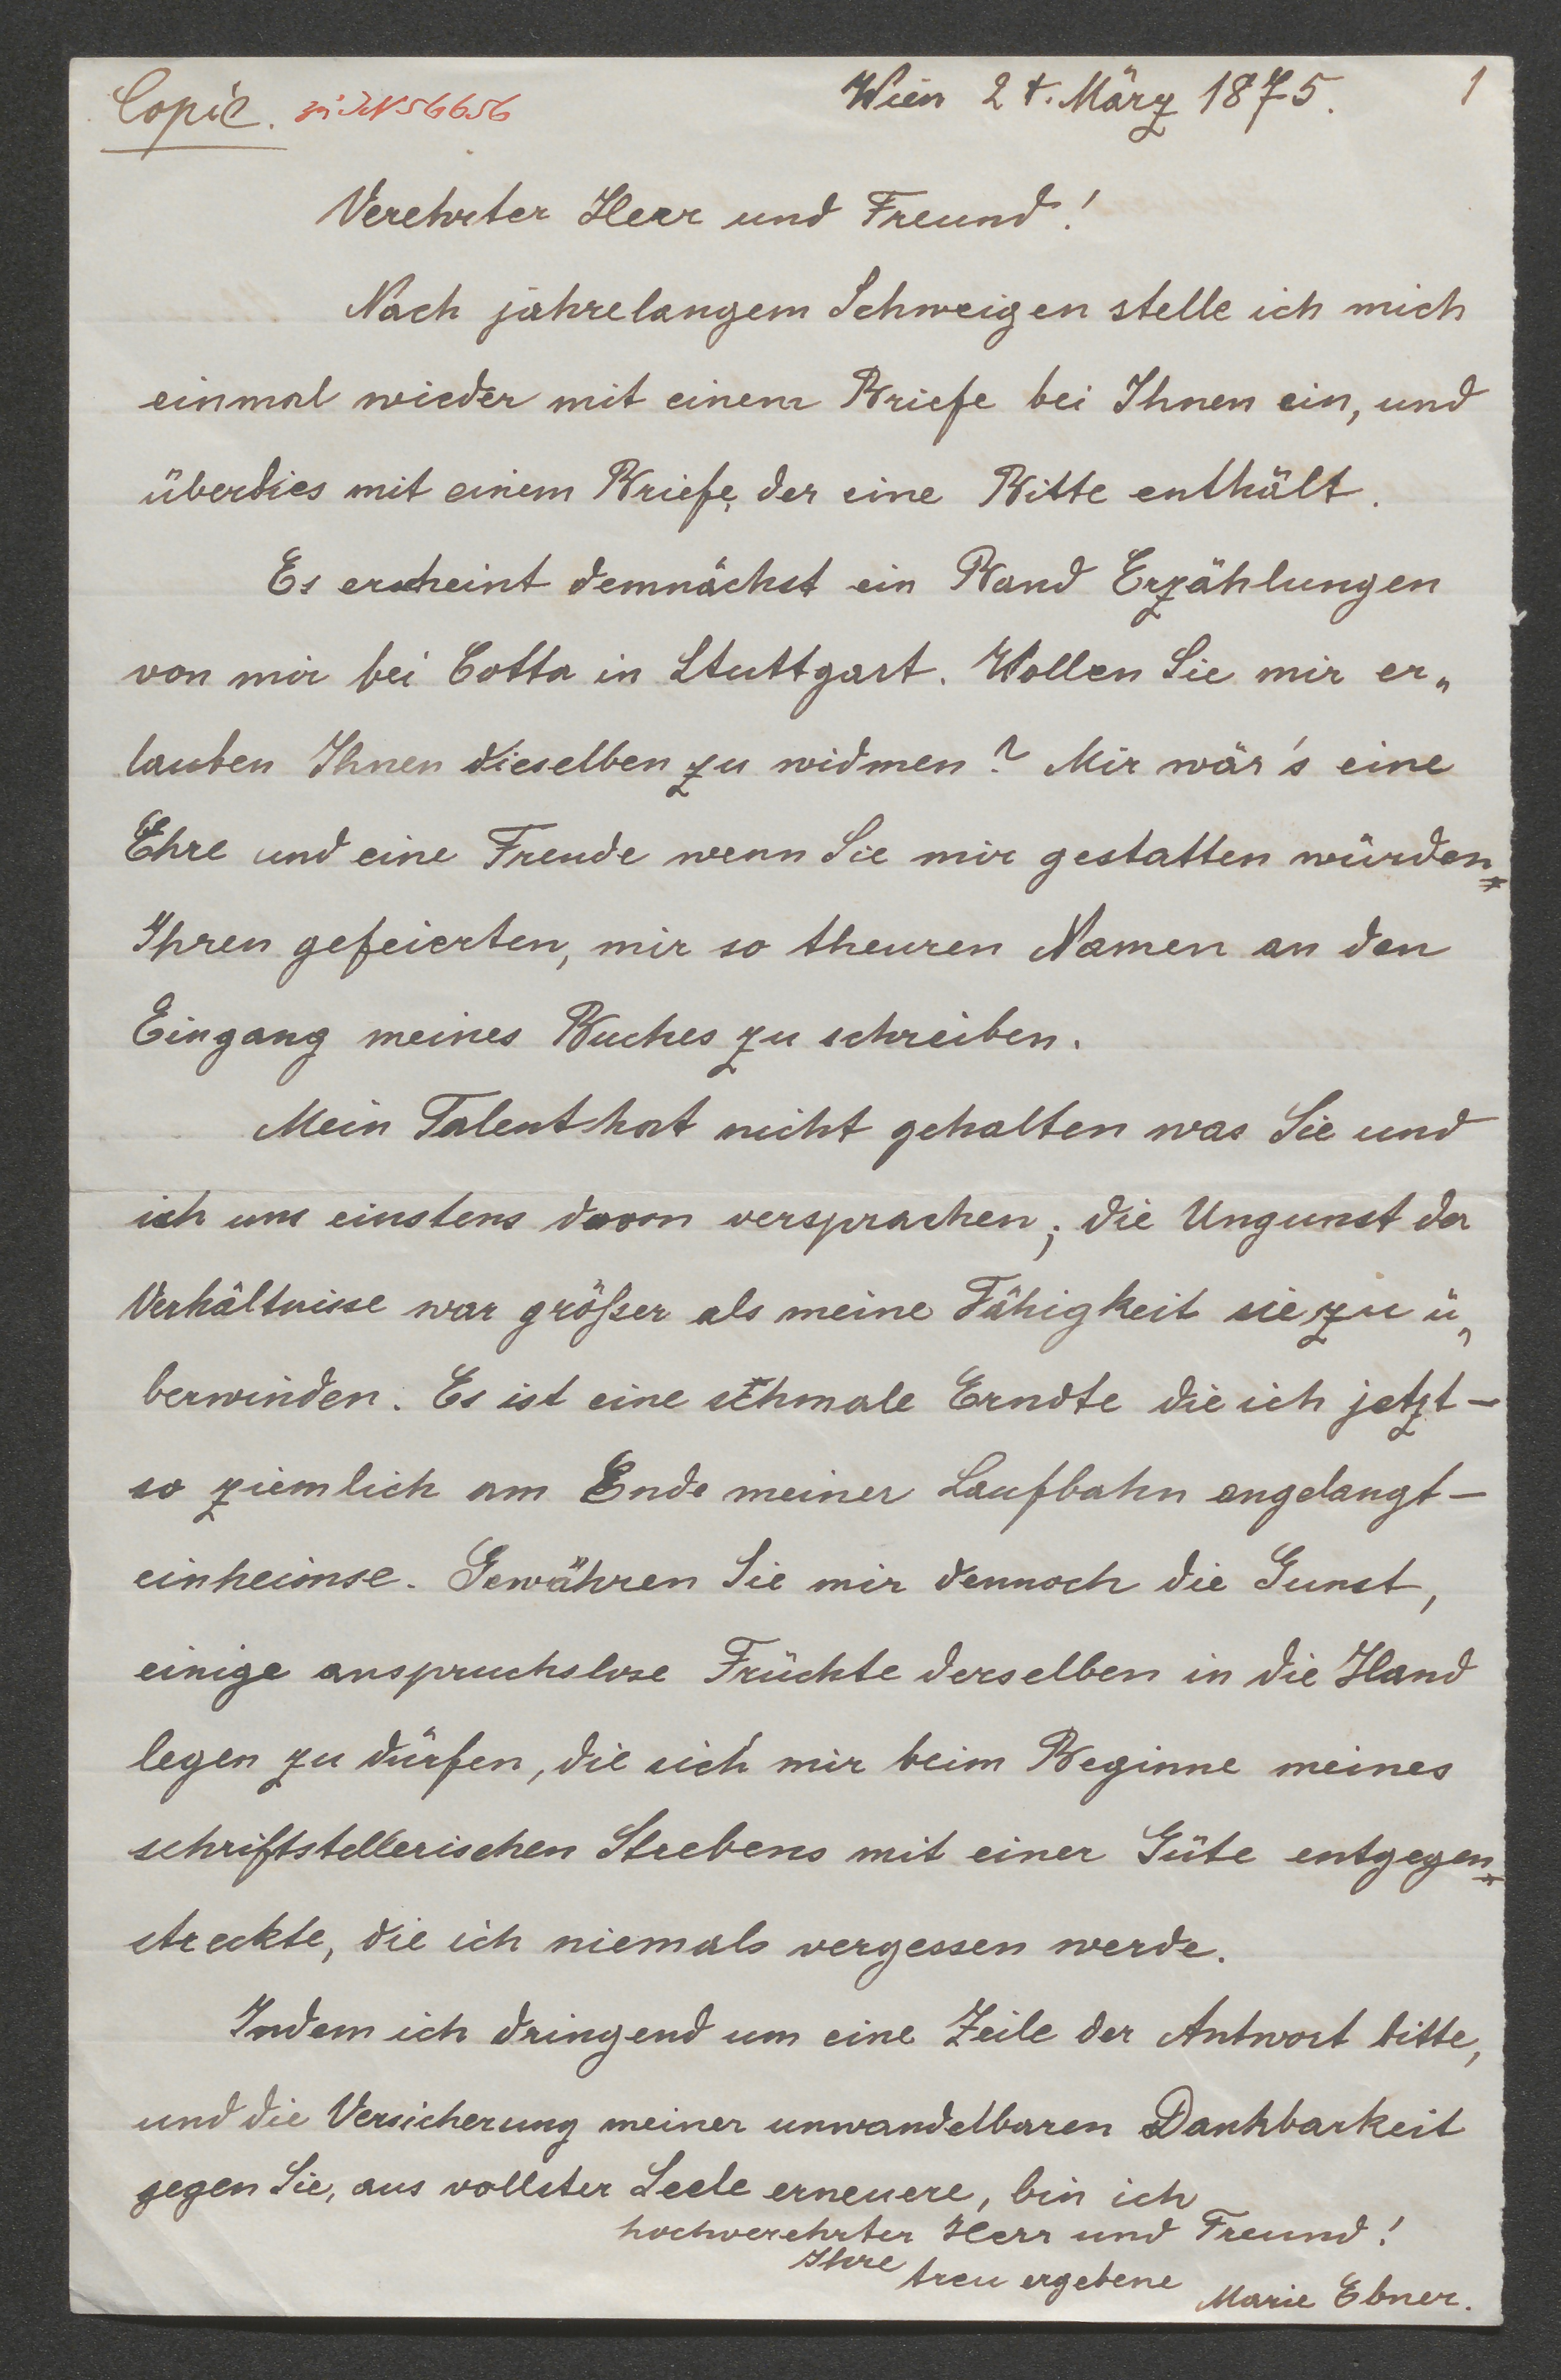 Copie. zu JN 56656
Wien 24. März 1875. 1
Verehrter Herr und Freund!
Nach jahrelangem Schweigen stelle ich mich
einmal wieder mit einem Briefe bei Ihnen ein, und
überdies mit einem Briefe, der eine Bitte enthält.
Es erscheint demnächst ein Band Erzählungen
von mir bei Cotta in Stuttgart. Wollen Sie mir er„
lauben Ihnen dieselben zu widmen? Mir wär's eine
Ehre und eine Freude wenn Sie mir gestatten würden
Ihren gefeierten, mir so theuren Namen an den
Eingang meines Buches zu schreiben.
Mein Talent hat nicht gehalten was Sie und
ich uns einstens davon versprachen; die Ungunst der
Verhältnisse war größer als meine Fähigkeit sie zu ü„
berwinden. Es ist eine schmale Erndte die ich jetzt –
so ziemlich am Ende meiner Laufbahn angelangt –
einheimse. Gewähren Sie mir dennoch die Gunst,
einige anspruchslose Früchte derselben in die Hand
legen zu dürfen, die sich mir beim Beginne meines
schriftstellerischen Strebens mit einer Güte entgegen
streckte, die ich niemals vergessen werde.
Indem ich dringend um eine Zeile der Antwort bitte,
und die Versicherung meiner unwandelbaren Dankbarkeit
gegen Sie, aus vollster Seele erneuere, bin ich
hochverehrter Herr und Freund!
Ihre treu ergebene
Marie Ebner.